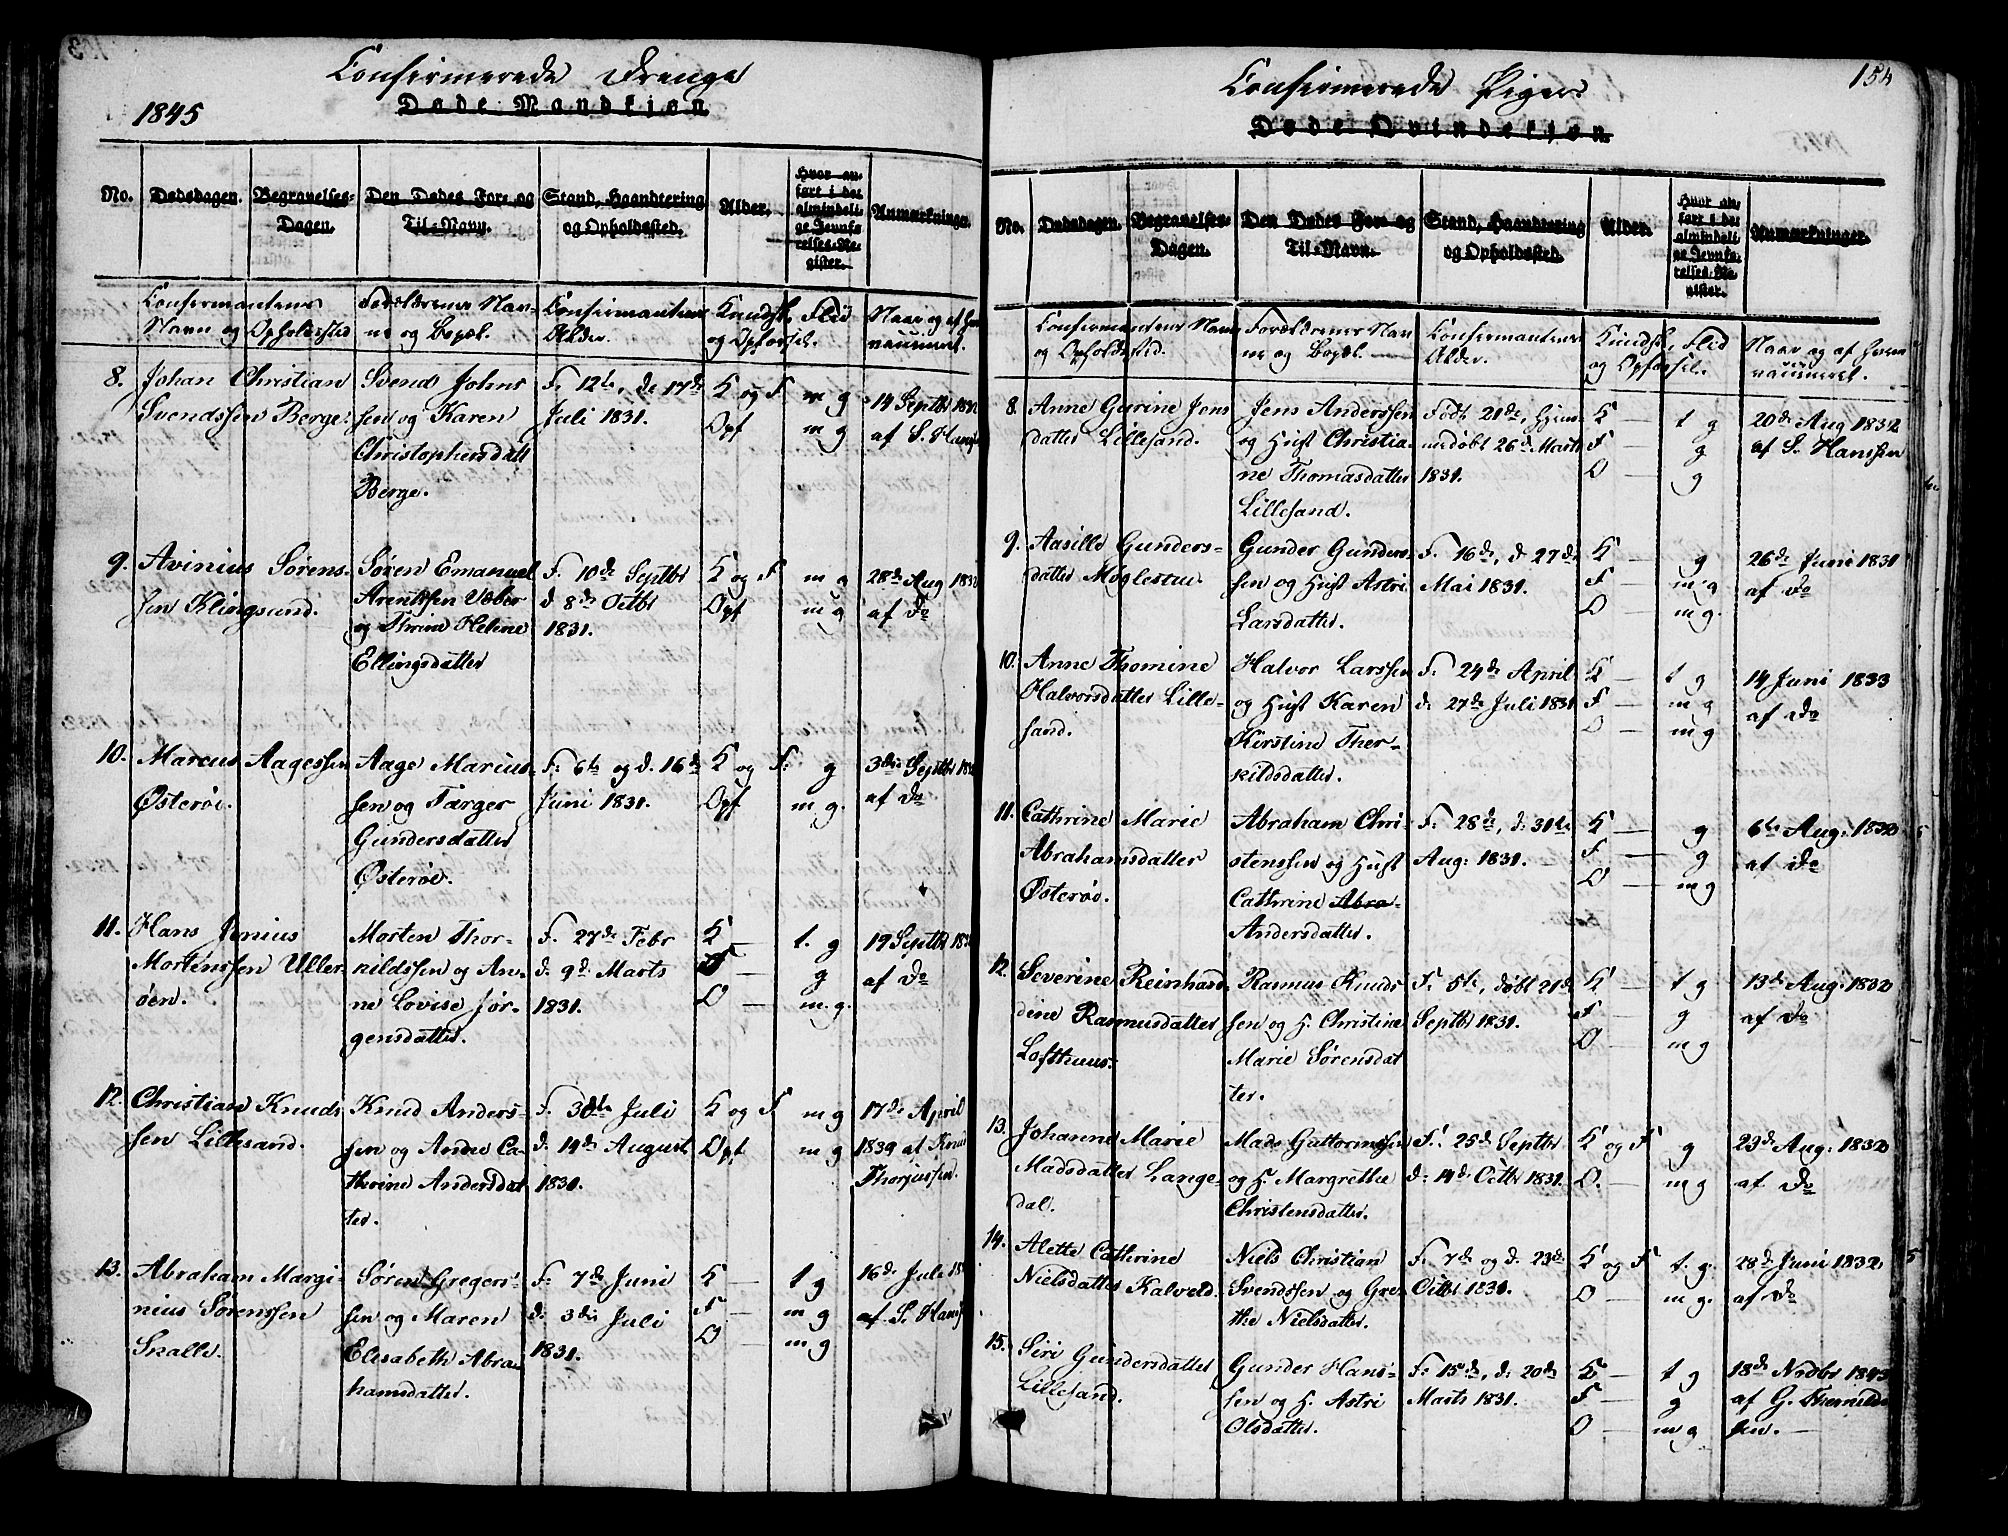 Confirmerede Drenge
1845
Døde Mandkjøn
No. Dødsdagen. Begravelses-Dagen. Den Dødes For- og Til-Navn. Stand, Haandtering og Opholdssted. Alder. Hvor anført i det almindelige Jevnførelses-Register. Anmærkninger.
Confirmantens Navn og Opholdssted
Forældrenes Navne og Bopæl.
Confirmantens Alder.
Kundsk. Flid og Opførsel.
Naar og af hvem vaccineret.
8. Johan Christian
Svendssen Berge.
Svend Johns
sen og Karen
Christophersdatt
Berge.
F. 12te, d. 17de
Juli 1831.
K og F m g
Opf m g
14 Septbr 1832
af S. Hans
9. Avinius Sørens-
sen Klingsund.
Søren Emanuel
Arentssen Væber
og Thrine Helene
Ellingsdatter
F. 10de Septbr
d 8de Octbr
1831.
K og F m g
Opf m g
28de Aug 1832
af Do
10. Marcus Aagessen
Østerøe.
Aage Marius
sen og Targer
Gundersdatter
Østerøe.
F. 6te og d. 16de
Juni 1831.
K og F. g
Opf m g.
3die Septbr
af Do
11. Hans Jenius
Mortenssen Uller-
øen.
Morten Thor-
kildssen og An-
ne Lovise Jør-
gensdatter.
F. 27de Febr
d. 9d. Marts
1831.
K — t. g
F — g
O — m. g.
19 Septbr
af Do
12. Christian Knuds
sen Lillesand.
Knud Anders-
sen og Anne Ca-
thrine Andersdat
ter.
F. 30te Juli
d. 14de August
1831.
K og F m g
Opf m g
17de April
1839 af Knud
Thorjussen.
13. Abraham Margi-
nius Sørenssen
Skalle.
Søren Gregers-
sen og Maren
Elisabeth Abra-
hamsdatter.
F. 7de Juni
d. 3die Juli
1831.
K — t g
F — m g
O — m g
16d. Juli
af S. Hans
Confirmerede Piger
154
Døde Qvindekjøn
No. Dødsdagen. Begravelses-Dagen. Den Dødes For- og Til-Navn. Stand, Haandtering og Opholdssted. Alder. Hvor anført i det almindelige Jevnførelses-Register. Anmærkninger.
Confirmantens Navn
og Opholdssted.
Forældrenes Nav-
ne og Bopæl. —
Confirmantens
Alder.
Kundsk., Flid
og Opførsel.
Naar og af hvem
vaccineret.
8. Anne Gurine Jens
datter Lillesand.
Jens Anderssen
og Hust Christia-
ne Thomasdatter
Lillesand.
Født 21de, hjem-
medøbt 26de Marts
1831.
K — t g
F — g
O — g
20de Aug 1832
af S. Hanssen
9. Aasille Gunders-
datter Møglestue.
Gunder Gunders-
sen og Hust Astri
Larsdatter.
F. 16de, d. 27de
Mai 1831.
K — g
F — m g
O — m g.
26de Juni 1831
af Do
10. Anne Thomine
Halvorsdatter Lille-
sand.
Halvor Larssen
og Hust Karen
Kirstine Ther-
kildsdatter.
F. 24de April
d. 27de Juli 1831
K — t g
F — m g
O — m g
14 Juni 1833
af Do
11. Cathrine Marie
Abrahamsdatter
Østerøe.
Abraham Chri-
stenssen og Hust
Cathrine Abra-
Andersdatter.
F. 28de, d. 31te
Aug: 1831. —
K — g
F — g
O — m g
6te Aug: 1832
af Do
12. Severine Reinhard
dine Rasmusdatter
Lofthuus.
Rasmus Knuds
sen og H. Christine
Marie Sørensdat
ter.
F. 5te, døbt 21de
Septbr 1831.
K — t g
F — g
O — m g
13de Aug: 1832
af Do
13. Johanne Marie
Madsdatter Lange-
dal.
Mads Guttormssen
og H. Margrethe
Christensdatter.
F. 25de Septbr
d. 14d. Octbr 1831.
K og F g
O. — m g
23de Aug: 1832
af Do
14. Alette Cathrine
Nielsdatter Kalveld.
Niels Christian
Svendssen og Gre-
the Nielsdatter.
F. 7de og d. 23de
Octbr 1831.
K og F t. g.
O — m g.
28de Juni 1832
af Do
15. Siri Gundersdatter
Lillesand.
Gunder Hans-
sen og H. Astri
Olsdatter.
F. 15de, d. 20de
Marts 1831.
K — t g
F — g
O — m g
18de Novbr 1843
af G.
sen. —